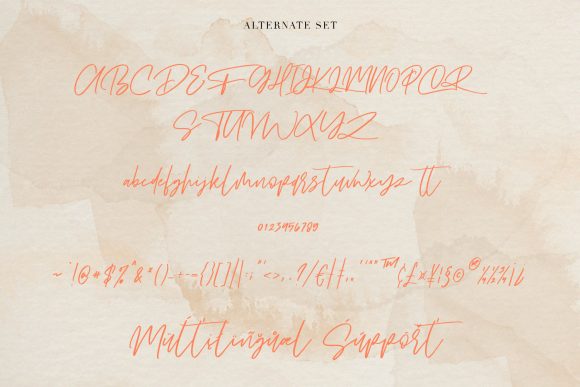 ALTERNATE SET
ABCDEFGHIJKLMNOPQR
STUVWXYZ
abcdefghijklmnopqrstuvwxyz tt
0123456789
~ ` ! @ # $ % ^ & * ( ) _ + - = { } [ ] | \ : ; " ' < > , . ? /
Mułtilingual Support